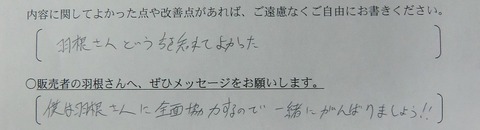 内容に関してよかった点や改善点があれば、ご遠慮なくご自由にお書きください。
羽根さんどうしを知れてよかった
○販売者の羽根さんへ、ぜひメッセージをお願いします。
僕は羽根さんに全面協力するので一緒にがんばりましょう!!